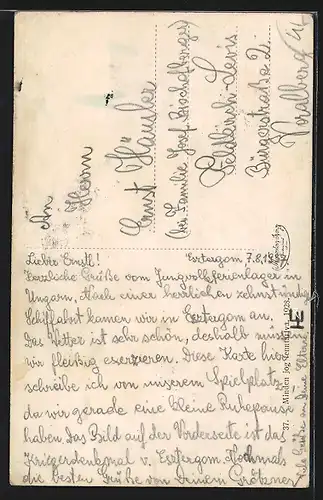 An
Herrn
Ernst Häusler
(bei Familie Josef Bischofberger)
Feldkirch-Levis
Bürgerstraße 2
Voralberg
Liebe Erndl! Estergom 7.8.
Herzliche Grüße vom Jungvolkferienlager in
Ungarn, Nach einer herrlichen zehnstündigen
Schiffahrt kamen wir in Estergom an.
Das Wetter ist sehr schön, deshalb müssen
wir fleißig exerzieren. Diese Karte hier
schreibe ich von unserem Spielplatz
da wir gerade eine kleine Ruhepause
haben. Das Bild auf der Vorderseite ist das
Kriegerdenkmal v. Estergom. Nochmals
die besten Grüße von Deinem
viele Grüße an Deine Eltern
37. Minden jog fenntartva. 1938.